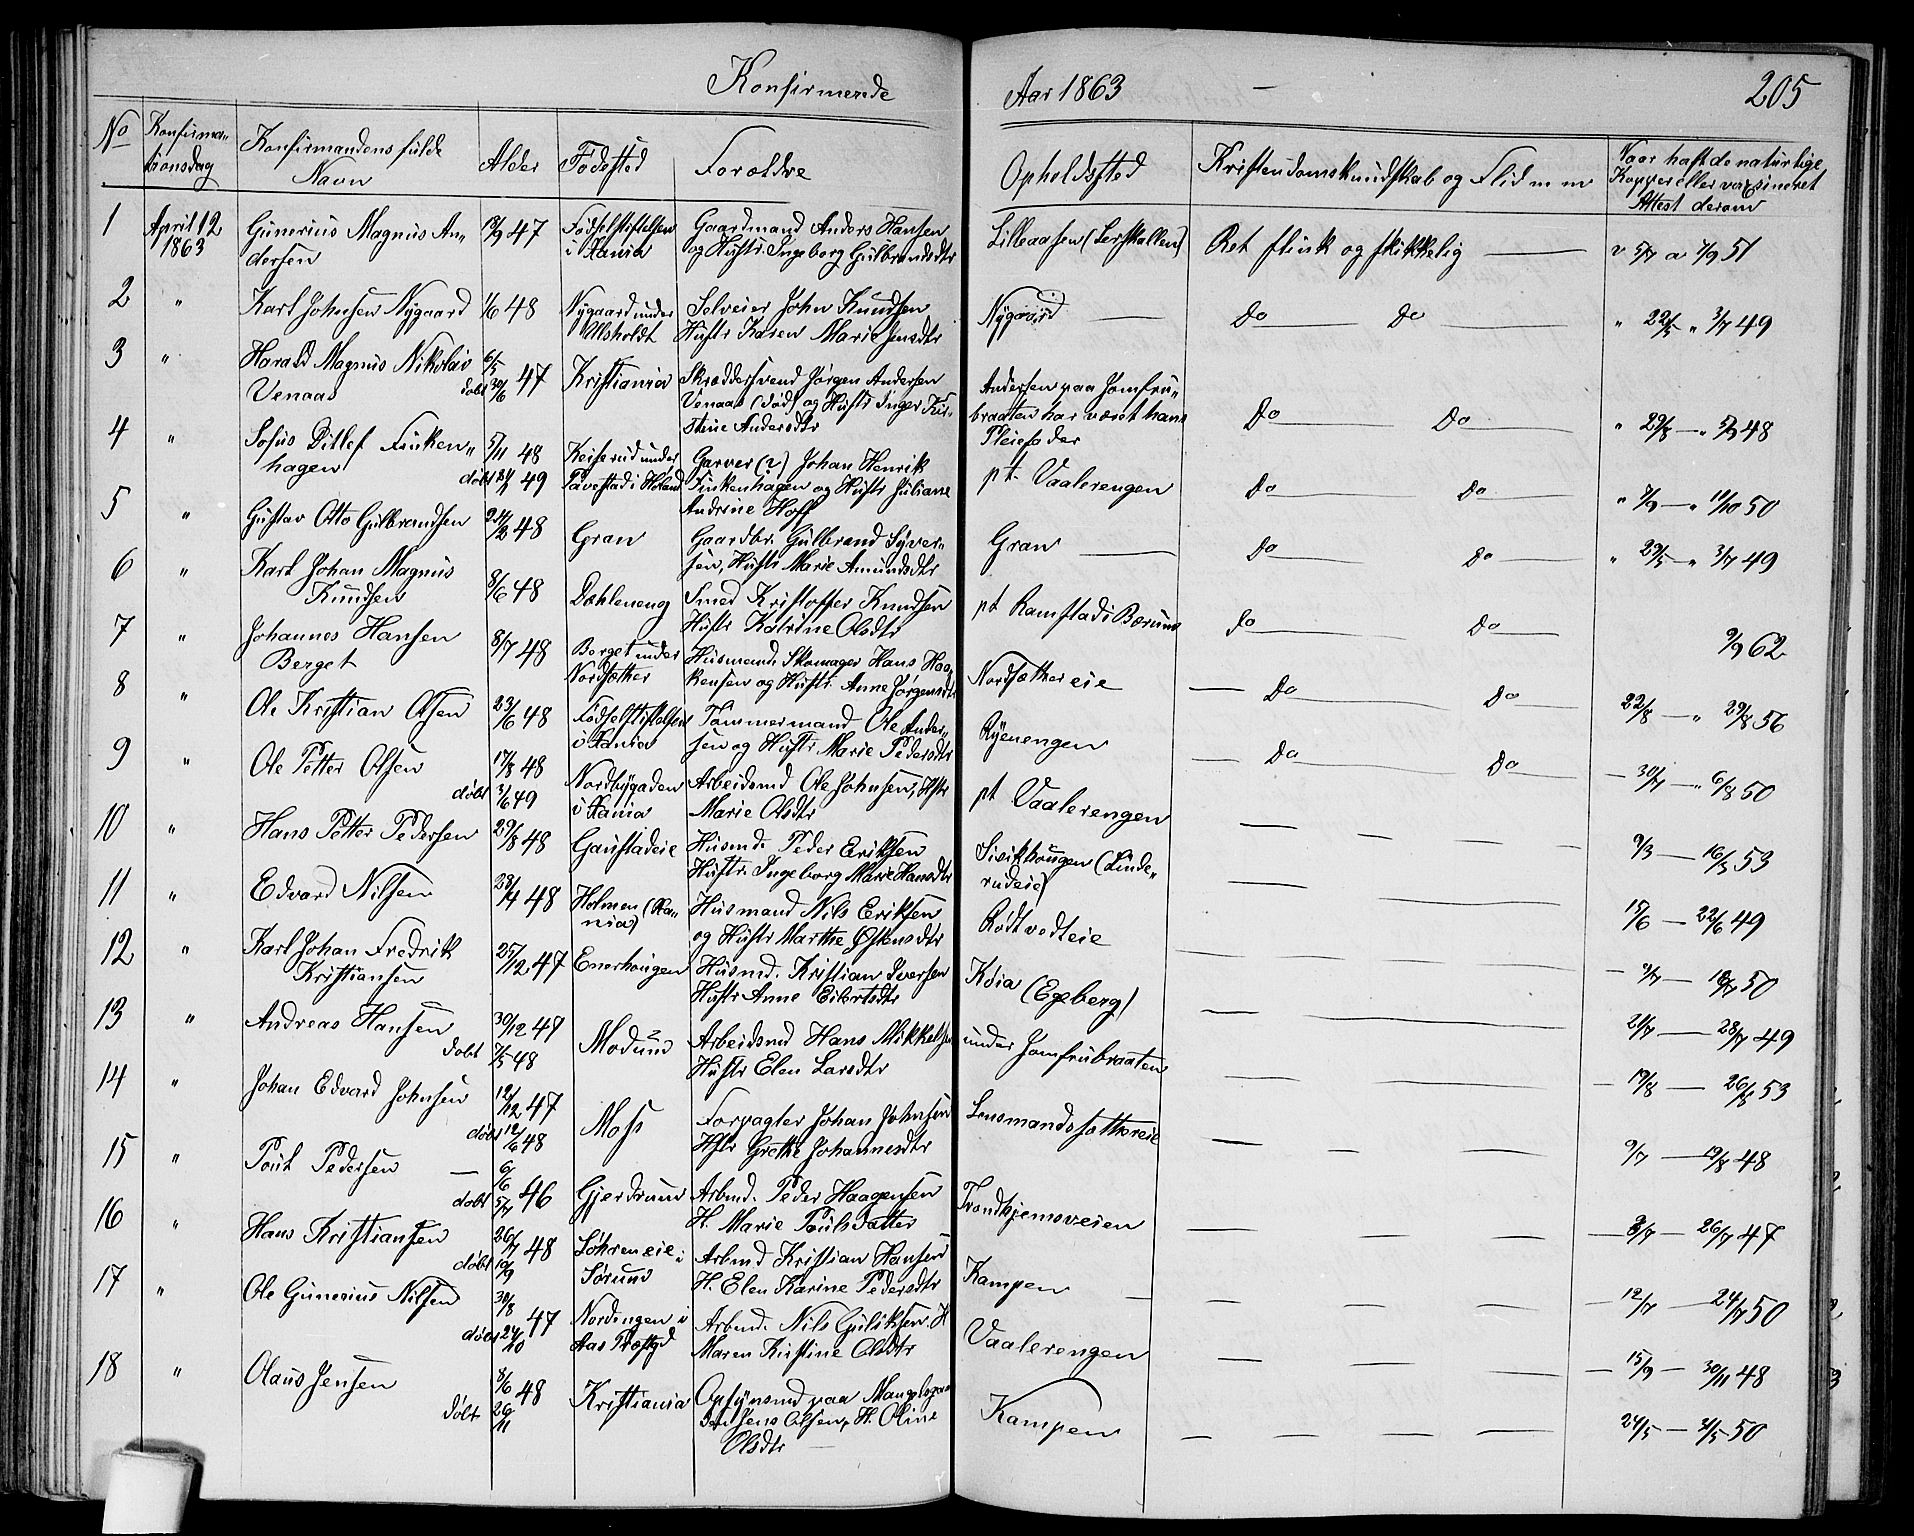 Konfirmerede Aar 1863 — 205
No Konfirma- Konfirmandens fulde Alder Fødested Forældre Opholdssted Kristendomskundskab og Flid m m Naar haft de naturlige
tionsdag Navn Kopper eller vaksineret
Attest derom
1 April 12 Gunerius Magnus An- 47 Fødselsstiftelsen Gaardmand Anders Hansen Lilleaasen (Lerskallen) Ret flink og skikkelig — v 5/7 a 51
1863 dersen i Xania og Hustr. Ingeborg Gulbrandsdtr
2 " Karl Johnsen Nygaard 1/6 48 Nygaard under Selveier John Knudsen Nygaard — Do — Do — " 22/5 " 3/7 49
Ulsholdt Hustr Karen Marie Jensdtr
3 " Harald Magnus Nikolai 6/5 47 Kristiania Skræddersvend Jørgen Andersen Andersen paa Jomfru-
Venaas døbt 30/6 Venaas (død) og Hustr Inger Kir- braaten har været hans Do — Do — " 29/8 — " 48
stine Andersdtr Pleiefader
4 " Sofus Ditlef Finken- 5/11 48 Keiserud under Garver (?) Johan Henrik pt. Vaalerengen Do — Do — " 7/9 — " 11/10 50
hagen døbt 49 Tavestad i Høland Finkenhagen og Hustr Juliane
Andrine Hoff
5 " Gustav Otto Gulbrandsen 24/2 48 Gran Gaardbr. Gulbrand Syver- Gran — Do — Do — " 29/5 — " 3/7 49
sen, Hustr Marie Amundsdtr
6 " Karl Johan Magnus 8/6 48 Dæhleneng Smed Kristoffer Knudsen pt Ramstad i Bærum Do — Do — 9/9 62
Knudsen Hustr Katrine Olsdtr
7 " Johannes Hansen 8/7 48 Berget under Husmand. Skomager Hans Haa- Nordsæthereie — Do — Do — 22/8 — " 29/8 56
Berget Nordsæther kensen og Hustr. Anne Jørgensdtr
8 " Ole Kristian Olsen 23/6 48 Fødselsstiftelsen Tømmermand Ole Ander- Ryenengen — Do — Do — — 30/7 — " 6/8 50
i Xania sen og Hustr. Marie Pedersdtr
9 " Ole Petter Olsen 17/8 48 Nordbygaden Arbeidsmd Ole Johnsen, Hstr pt Vaalerengen — — — — 9/3 — 16/3 53
døbt 3/6 49 i Xania Marie Olsdtr
10 " Hans Petter Pedersen 29/8 48 Gaustadeie Husmd. Peder Eriksen Sisikhaugen (Linde- — — 15/6 — 22/6 49
Hustr. Ingeborg Marie Hansdtr rudeie)
11 " Edvard Nilsen 28/4 48 Holmen (Xa- Husmand Nils Eriksen Rødtvedteie — — — — 50
nia) og Hustr Marthe Østensdtr
12 " Karl Johan Fredrik 25/12 47 Enerhougen Husmd. Kristian Iversen Køia (Egeberg) — — 21/7 — 28/7 49
Kristiansen Hustr Anne Eilertsdtr
13 " Andreas Hansen 30/12 47 Modum Arbeidsmd Hans Mikkelsen under Jomfrubraaten — — — 19/8 — 26/8 53
døbt 7/5 48 Hustr Elen Larsdtr
14 " Johan Edvard Johnsen 12/12 47 Moss Forpagter Johan Johnsen Lensmandssæthereie — — — — 9/7 — 19/8 48
døbt 12/6 48 Hstr Grethe Johannesdtr
15 " Poul Pedersen — 6/6 46 Gjerdrum Arbmd. Peder Haagensen Trondhjemsveien — — — — — 8/7 — 26/7 47
døbt 5/7 H. Marie Poulsdatter
16 " Hans Kristiansen 26/7 48 Løhreneie i Arbmd Kristian Hansen Kampen — — — — — — 12/7 — 24/7 50
døbt 10/9 Sørum H. Elen Karine Pedersdtr
17 " Ole Gunerius Nilsen 30/8 47 Nordengen i Arbmd. Nils Guliksen H Vaalerengen — — — — — 15/9 — 30/11 48
døbt 24/10 Aas Præstgd Maren Kirstine Olsdtr
18 " Olaus Jensen 8/6 48 Kristiania Opsynsmd paa Mangelsgaar- Kampen — — — — — 24/5 — 31/5 50
døbt 26/11 den Jens Olsen, H. Oline
Olsdtr —